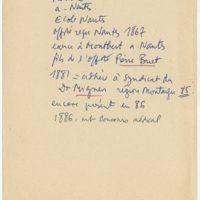 a - Nantes
Ecole Nantes
reçu Nantes 1867
exerce à Montbert a Nantes
fils de l'offste Pierre
1881 = adhère à syndicat du
Dr Mignen région Montaigu 85
encore présent en 86
1886: est concours médical